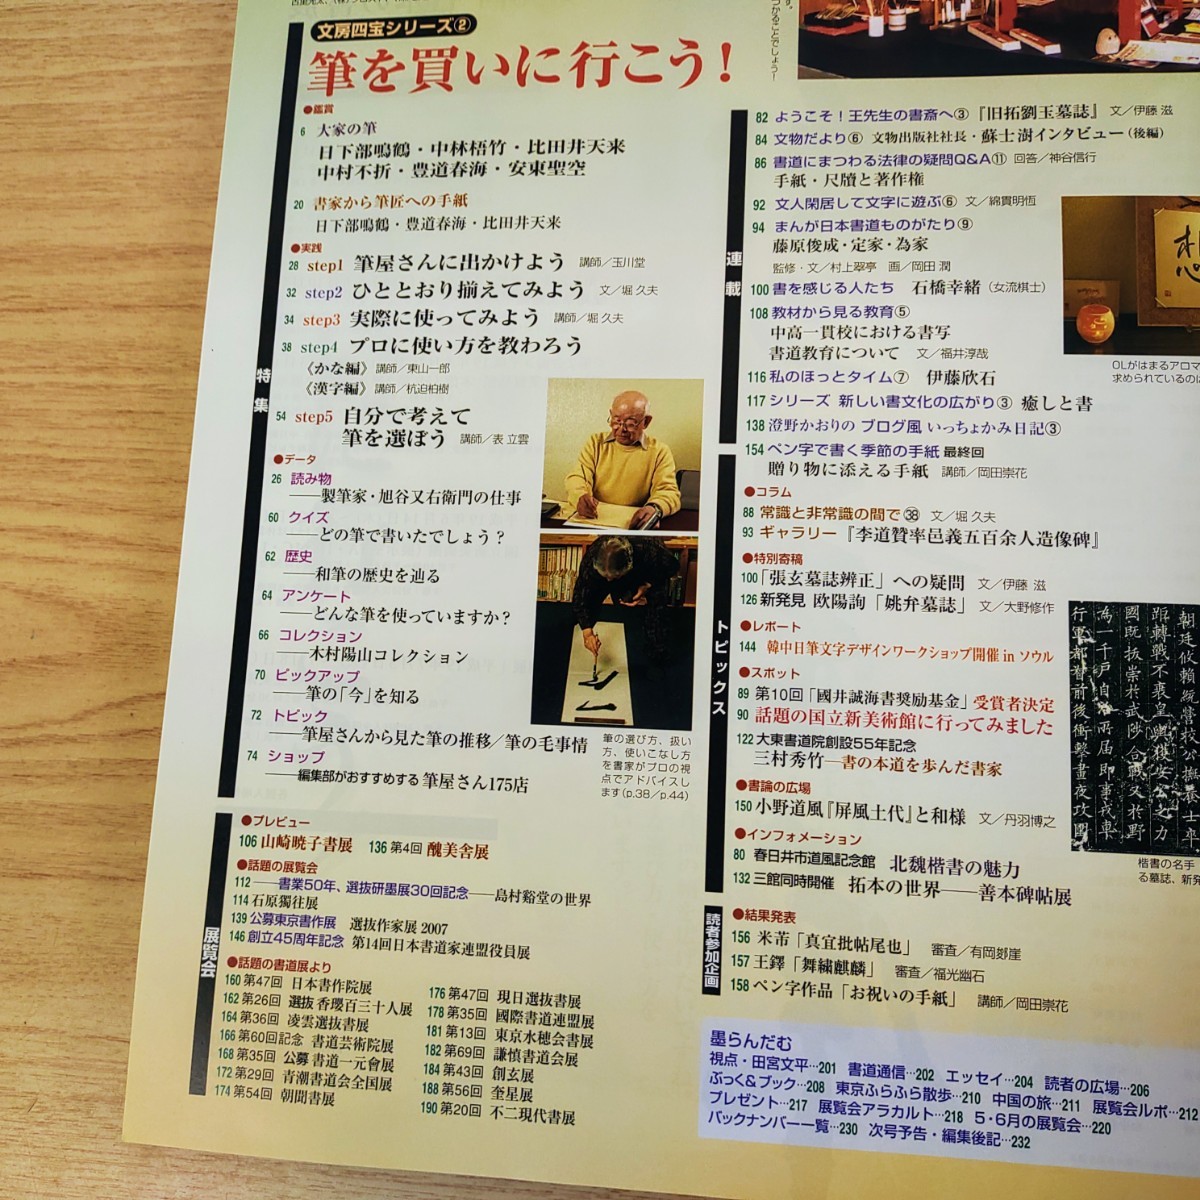 文房四宝シリーズ②
筆を買いに行こう!
●鑑賞
6 大家の筆
日下部鳴鶴・中林梧竹・比田井天来
中村不折・豊道春海・安東聖空
20 書家から筆匠への手紙
日下部鳴鶴・豊道春海・比田井天来
●実践
28 step1 筆屋さんに出かけよう 講師/玉川堂
32 step2 ひととおり揃えてみよう 文/堀 久夫
34 step3 実際に使ってみよう 講師/堀 久夫
38 step4 プロに使い方を教わろう
〈かな編〉講師/東山一郎
〈漢字編〉講師/杭迫柏樹
54 step5 自分で考えて
筆を選ぼう 講師/表 立雲
特集
●データ
26 読み物
――製筆家・旭谷又右衛門の仕事
60 クイズ
――どの筆で書いたでしょう?
62 歴史
――和筆の歴史を辿る
64 アンケート
――どんな筆を使っていますか?
66 コレクション
――木村陽山コレクション
70 ピックアップ
――筆の「今」を知る
72 トピック
――筆屋さんから見た筆の推移/筆の毛事情
74 ショップ
――編集部がおすすめする 筆屋さん175店
筆の選び方、扱い
方、使いこなし方
を書家がプロの視
点でアドバイスし
ます(p.38/p.44)
展覧会
●プレビュー
106 山崎暁子書展 136 第4回 醜美舎展
●話題の展覧会
112 ――書業50年、選抜研墨展30回記念――島村谿堂の世界
114 石原獨往展
139 公募東京書作展 選抜作家展 2007
146 創立45周年記念 第14回日本書道家連盟役員展
●話題の書道展より
160 第47回 日本書作院展
162 第26回 選抜 香瓔百三十人展
164 第36回 凌雲選抜書展
166 第60回記念 書道芸術院展
168 第35回 公募 書道一元會展
172 第29回 青潮書道会全国展
174 第54回 朝聞書展
176 第47回 現日選抜書展
178 第35回 國際書道連盟展
181 第13回 東京水穂会書展
182 第69回 謙慎書道会展
184 第43回 創玄展
188 第56回 奎星展
190 第20回 不二現代書展
つかることでしょう!
連載
82 ようこそ!王先生の書斎へ③『旧拓劉玉墓誌』 文/伊藤 滋
84 文物だより⑥ 文物出版社社長・蘇士澍インタビュー(後編)
86 書道にまつわる法律の疑問Q&A⑪ 回答/神谷信行
手紙・尺牘と著作権
92 文人閑居して文字に遊ぶ⑥ 文/綿貫明恆
94 まんが日本書道ものがたり⑨
藤原俊成・定家・為家
監修・文/村上翠亭 画/岡田 潤
100 書を感じる人たち 石橋幸緒(女流棋士)
108 教材から見る教育⑤
中高一貫校における書写
書道教育について 文/福井淳哉
116 私のほっとタイム⑦ 伊藤欣石
117 シリーズ 新しい書文化の広がり③ 癒しと書
138 澄野かおりの ブログ風 いっちょかみ日記③
154 ペン字で書く季節の手紙 最終回
贈り物に添える手紙 講師/岡田崇花
OLがはまるアロマ
求められているのは
トピックス
●コラム
88 常識と非常識の間で㊳ 文/堀 久夫
93 ギャラリー『李道贊率邑義五百余人造像碑』
●特別寄稿
100「張玄墓誌辨正」への疑問 文/伊藤 滋
126 新発見 欧陽詢「姚弁墓誌」 文/大野修作
●レポート
144 韓中日筆文字デザインワークショップ開催 in ソウル
●スポット
89 第10回「國井誠海書奨励基金」受賞者決定
90 話題の国立新美術館に行ってみました
122 大東書道院創設55年記念
三村秀竹―書の本道を歩んだ書家
●書論の広場
150 小野道風『屏風土代』と和様 文/丹羽博之
●インフォメーション
80 春日井市道風記念館 北魏楷書の魅力
132 三館同時開催 拓本の世界――善本碑帖展
楷書の名手
る墓誌、新発
読者参加企画
●結果発表
156 米芾「真宜批帖尾也」 審査/有岡郖崖
157 王鐸「舞繍麒麟」 審査/福光幽石
158 ペン字作品「お祝いの手紙」 講師/岡田崇花
墨らんだむ
視点・田宮文平…201 書道通信…202 エッセイ…204 読者の広場…206
ぶっく&ブック…208 東京ふらふら散歩…210 中国の旅…211 展覧会ルポ…212
プレゼント…217 展覧会アラカルト…218 5・6月の展覧会…220
バックナンバー一覧…230 次号予告・編集後記…232